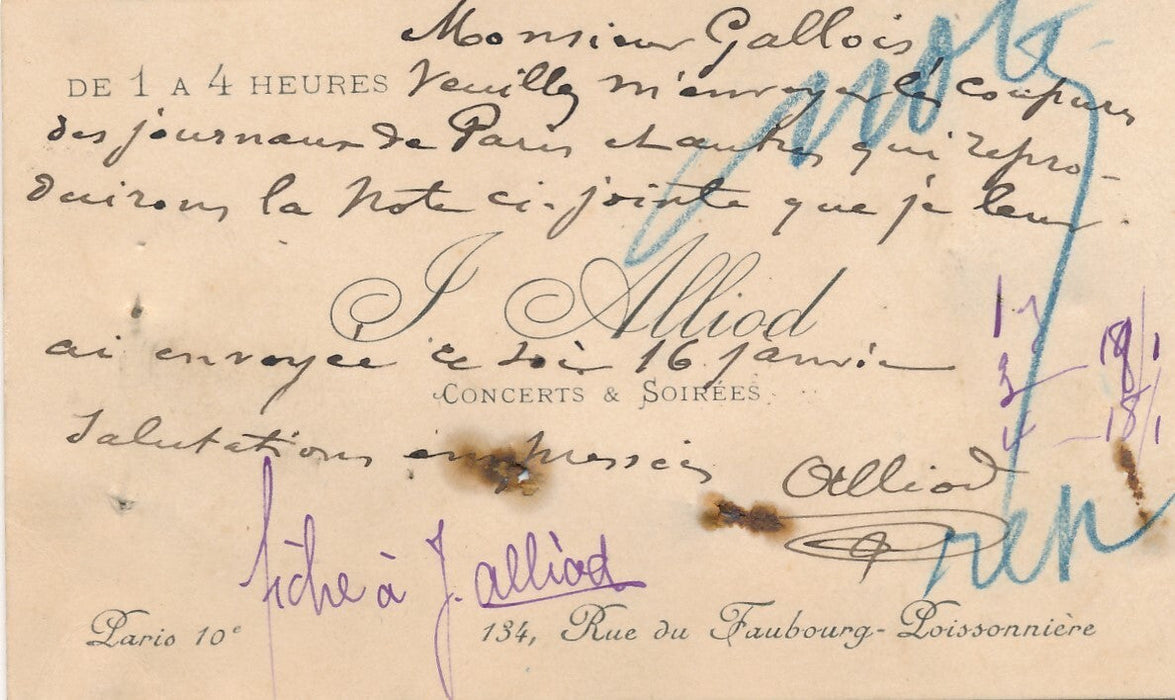 Monsieur Gallois
DE 1 A 4 HEURES Veuillez m'envoyer les coupures
des journaux de Paris et autres qui repro-
duirons la Note ci-jointe que je leur
J Alliod
ai envoyée ce soir 16 janvier
CONCERTS & SOIRÉES
Salutations empressées
Alliod
note
18/1
3 - 18/1
fiche à J. alliod
Paris 10e 134, Rue du Faubourg-Poissonnière